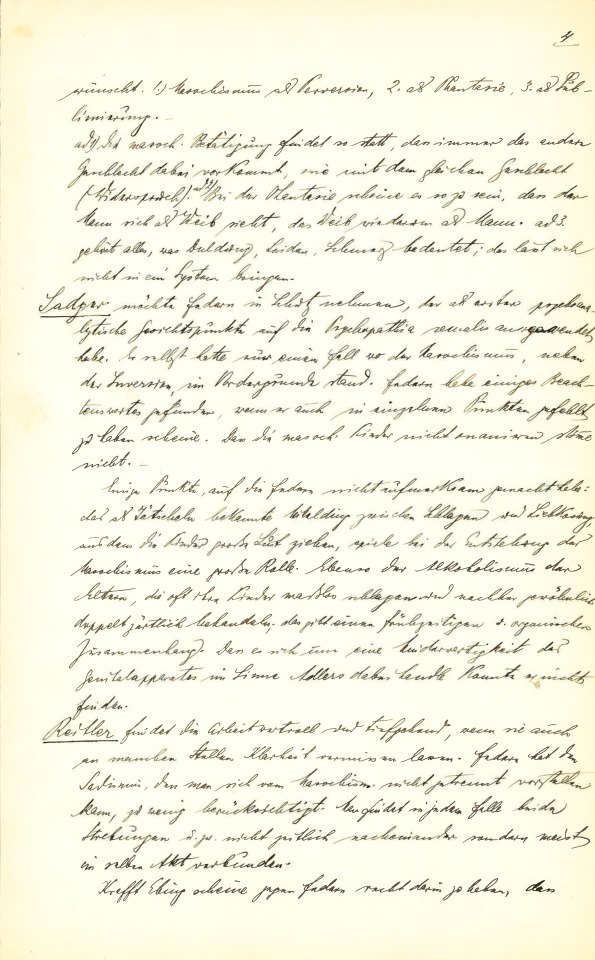 4
wünscht. 1.) Masochismus als Perversion, 2. als Phantasie, 3. als Sub-
limierung. -
ad 1) Die masoch. Betätigung findet so statt, dass immer das andere
Geschlecht dabei vorkommt, nie mit dem gleichen Geschlecht
(Widerspruch). ad 2) Bei der Phantasie scheine es so zu sein, dass der
Mann sich als Weib sieht, das Weib wiederum als Mann. ad 3.
gehört alles, was Duldung, Leiden, Schmerz bedeutet; das lässt sich
nicht in ein System bringen.
Sadger möchte Federn in Schutz nehmen, der als erster psychoana-
lytische Gesichtspunkte auf die Psychopathia sexualis angewendet
habe. Er selbst hatte nur einen Fall wo der Masochismus, neben
der Inversion, im Vordergrunde stand. Federn habe einiges Beach-
tenswertes gefunden, wenn er auch in einzelnen Punkten gefehlt
zu haben scheine. Dass die masoch. Kinder nicht onanieren stimme
nicht. -
Einige Punkte, auf die Federn nicht aufmerksam gemacht habe:
das als Tätscheln bekannte Mittelding zwischen Schlagen und Liebkosung,
aus dem die Kinder grosse Lust ziehen, spiele bei der Entstehung des
Masochismus eine grosse Rolle. Ebenso der Alkoholismus der
Aeltern, die oft ihre Kinder masslos schlagen und nachher gewöhnlich
doppelt zärtlich behandeln; das gibt einen frühzeitigen u. organischen
Zusammenhang. Dass es sich um eine Minderwertigkeit des
Genitalapparates im Sinne Adlers dabei handle konnte er nicht
finden.
Reitler findet die Arbeit wertvoll und tiefgehend, wenn sie auch
an manchen Stellen Klarheit vermissen lasse. Federn hat den
Sadismus, den man sich vom Masochism. nicht getrennt vorstellen
kann, zu wenig berücksichtigt. Man findet in jedem Falle beide
Strebungen u. zw. nicht zeitlich nacheinander sondern meist
im selben Akt verbunden.
Krafft Ebing scheine gegen Federn recht darin zu haben, dass